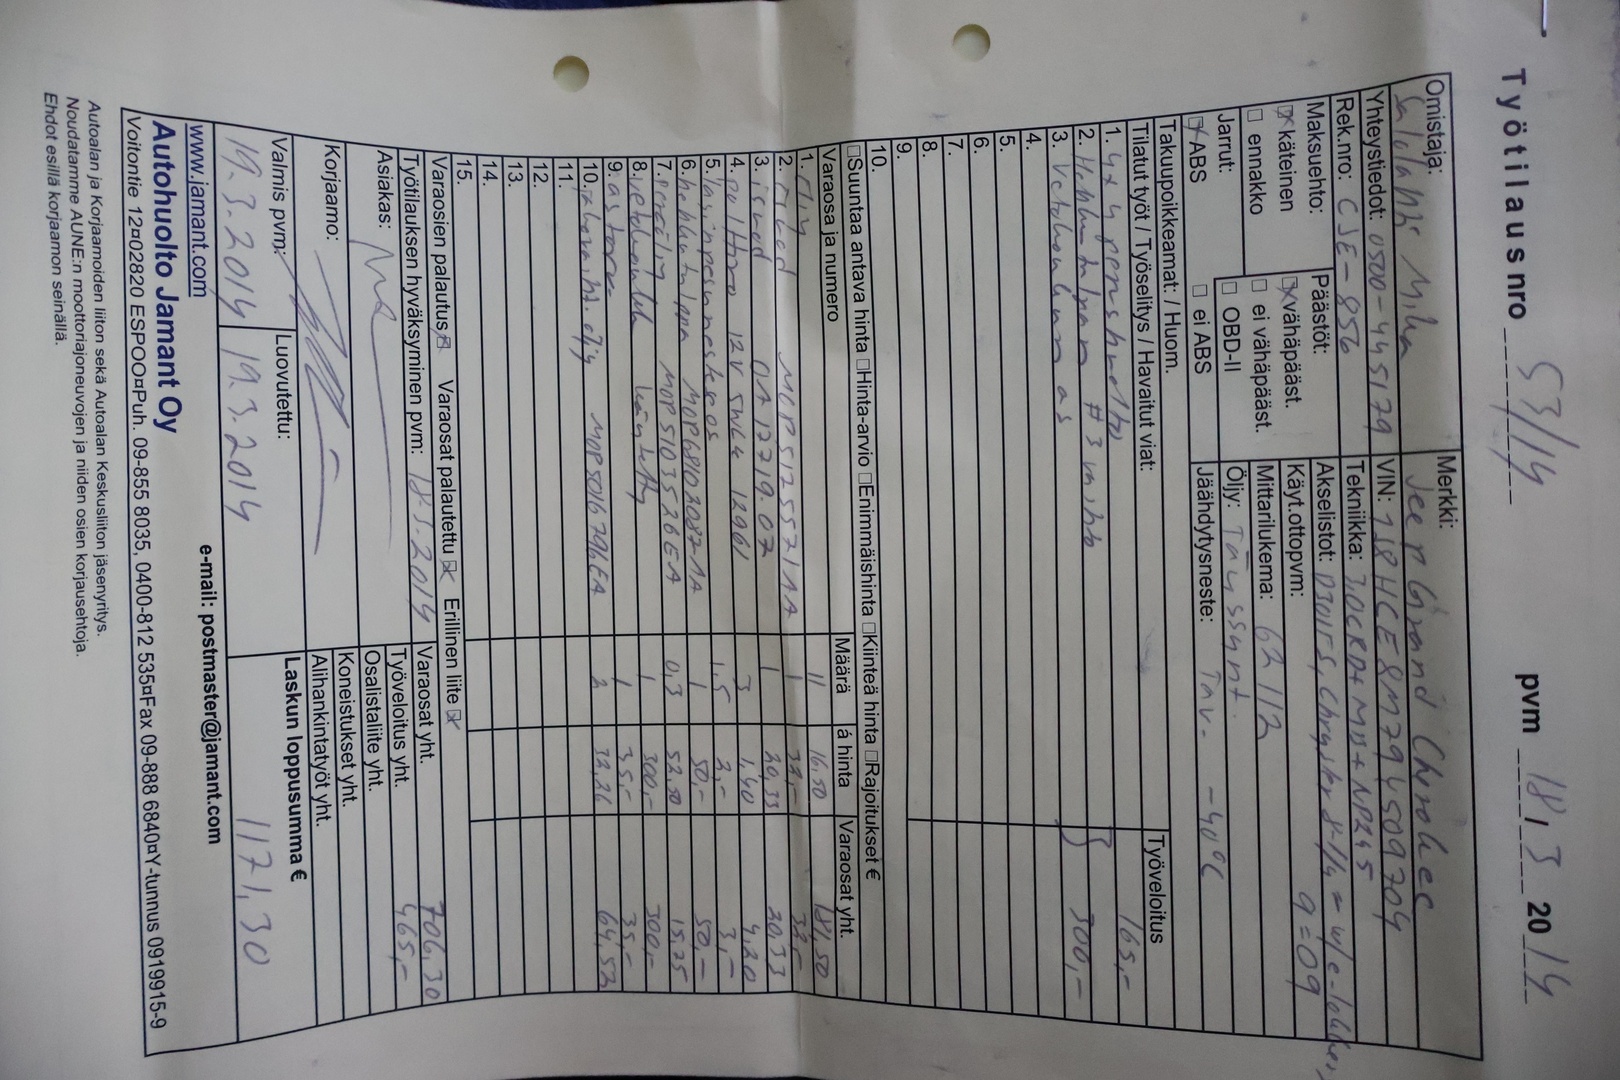 Työtilaus nro 53/14 pvm 18.3 2014
Omistaja: Merkki:
Mika Jeep Grand Cherokee
Yhteystiedot: 0500-445179 VIN: 1J8HCE8M79Y509704
Rek.nro: CJE-856 Tekniikka: 3.0CRD+MB+NP245
Maksuehto: Päästöt: Akselistot: D30IFS, Chrysler 8-1/4" w/e-lokker
☒ käteinen ☒ vähäpääst. Käyt.ottopvm: 9=09
☐ ennakko ☐ ei vähäpääst. Mittarilukema: 62112
Jarrut: ☐ OBD-II Öljy: Täyssynt.
☒ ABS ☐ ei ABS Jäähdytysneste: Tav. -40°C
Takuupoikkeamat: / Huom.
Tilatut työt / Työselitys / Havaitut viat: Työveloitus
1. 4x4 perushuolto 165,-
2. #3 vaihto
3. Vetonivelen as 300,-
4.
5.
6.
7.
8.
9.
10.
☐Suuntaa antava hinta ☐Hinta-arvio ☐Enimmäishinta ☐Kiinteä hinta ☐Rajoitukset €
Varaosa ja numero Määrä á hinta Varaosat yht.
1. öljy 11 16,50 181,50
2. MOP5125571AA 1 32,- 32,-
3. OA 1719.07 1 20,33 20,33
4. polttimo 12V 5W 3 1,40 4,20
5. lasinpesuneste 1,5 2,- 3,-
6. MOP68020872AA 1 50,- 50,-
7. MOP5103526EA 0,3 52,50 15,75
8. 1 300,- 300,-
9. 1 35,- 35,-
10. öljy MOP5016796EA 2 32,26 64,52
11.
12.
13.
14.
15.
Varaosien palautus ☒ Varaosat palautettu ☒ Erillinen liite ☒ Varaosat yht. 706,30
Työtilauksen hyväksyminen pvm: 18.3.2014 Työveloitus yht. 465,-
Asiakas: Osalistaliite yht.
Koneistukset yht.
Korjaamo: Alihankintatyöt yht.
Valmis pvm: Luovutettu: Laskun loppusumma €
19.3.2014 19.3.2014 1171,30
www.jamant.com e-mail: postmaster@jamant.com
Autohuolto Jamant Oy
Voitontie 12¤02820 ESPOO¤Puh. 09-855 8035, 0400-812 535¤Fax 09-888 6840¤Y-tunnus 0919915-9
Autoalan ja Korjaamoiden liiton sekä Autoalan Keskusliiton jäsenyritys.
Noudatamme AUNE:n moottoriajoneuvojen ja niiden osien korjausehtoja.
Ehdot esillä korjaamon seinällä.